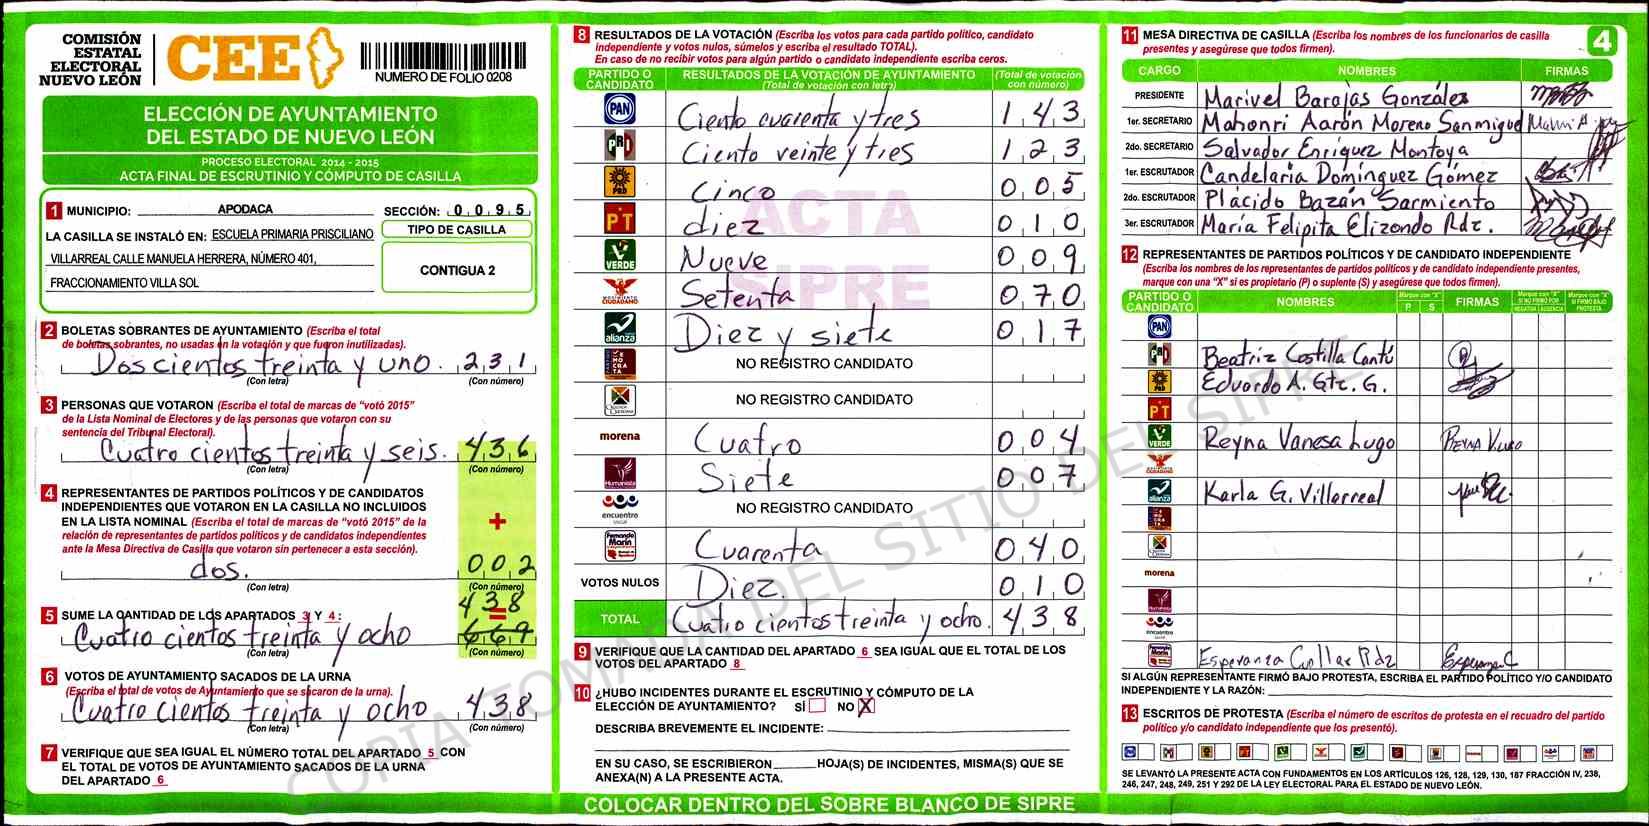 COMISIÓN
ESTATAL
ELECTORAL
NUEVO LEÓN
CEE
NUMERO DE FOLIO 0208
ELECCIÓN DE AYUNTAMIENTO
DEL ESTADO DE NUEVO LEÓN
PROCESO ELECTORAL 2014 - 2015
ACTA FINAL DE ESCRUTINIO Y CÓMPUTO DE CASILLA
1 MUNICIPIO: APODACA SECCIÓN: 0 0 9 5
LA CASILLA SE INSTALÓ EN: ESCUELA PRIMARIA PRISCILIANO
VILLARREAL CALLE MANUELA HERRERA, NÚMERO 401,
FRACCIONAMIENTO VILLA SOL
TIPO DE CASILLA
CONTIGUA 2
2 BOLETAS SOBRANTES DE AYUNTAMIENTO (Escriba el total
de boletas sobrantes, no usadas en la votación y que fueron inutilizadas).
Dos cientos treinta y uno. 2 3 1
(Con letra) (Con número)
3 PERSONAS QUE VOTARON (Escriba el total de marcas de “votó 2015”
de la Lista Nominal de Electores y de las personas que votaron con su
sentencia del Tribunal Electoral).
Cuatro cientos treinta y seis. 4 3 6
(Con letra) (Con número)
4 REPRESENTANTES DE PARTIDOS POLÍTICOS Y DE CANDIDATOS
INDEPENDIENTES QUE VOTARON EN LA CASILLA NO INCLUIDOS
EN LA LISTA NOMINAL (Escriba el total de marcas de “votó 2015” de la
relación de representantes de partidos políticos y de candidatos independientes
ante la Mesa Directiva de Casilla que votaron sin pertenecer a esta sección).
+
dos. 0 0 2
(Con letra) (Con número)
4 3 8
5 SUME LA CANTIDAD DE LOS APARTADOS 3 Y 4 : =
Cuatro cientos treinta y ocho 6 6 9
(Con letra) (Con número)
6 VOTOS DE AYUNTAMIENTO SACADOS DE LA URNA
(Escriba el total de votos de Ayuntamiento que se sacaron de la urna).
Cuatro cientos treinta y ocho 4 3 8
(Con letra) (Con número)
7 VERIFIQUE QUE SEA IGUAL EL NÚMERO TOTAL DEL APARTADO 5 CON
EL TOTAL DE VOTOS DE AYUNTAMIENTO SACADOS DE LA URNA
DEL APARTADO 6
8 RESULTADOS DE LA VOTACIÓN (Escriba los votos para cada partido político, candidato
independiente y votos nulos, súmelos y escriba el resultado TOTAL).
En caso de no recibir votos para algún partido o candidato independiente escriba ceros.
PARTIDO O CANDIDATO
RESULTADOS DE LA VOTACIÓN DE AYUNTAMIENTO
(Total de votación con letra)
(Total de votación con número)
PAN Ciento cuarenta y tres 1 4 3
PRI Ciento veinte y tres 1 2 3
PRD Cinco 0 0 5
PT diez 0 1 0
VERDE Nueve 0 0 9
MOVIMIENTO CIUDADANO Setenta 0 7 0
alianza Diez y siete 0 1 7
NO REGISTRO CANDIDATO
NO REGISTRO CANDIDATO
morena Cuatro 0 0 4
Humanista Siete 0 0 7
encuentro social NO REGISTRO CANDIDATO
Fernando Marín Cuarenta 0 4 0
VOTOS NULOS Diez. 0 1 0
TOTAL Cuatro cientos treinta y ocho. 4 3 8
ACTA
SIPRE
9 VERIFIQUE QUE LA CANTIDAD DEL APARTADO 6 SEA IGUAL QUE EL TOTAL DE LOS
VOTOS DEL APARTADO 8
10 ¿HUBO INCIDENTES DURANTE EL ESCRUTINIO Y CÓMPUTO DE LA
ELECCIÓN DE AYUNTAMIENTO? SÍ NO X
DESCRIBA BREVEMENTE EL INCIDENTE:
EN SU CASO, SE ESCRIBIERON HOJA(S) DE INCIDENTES, MISMA(S) QUE SE
ANEXA(N) A LA PRESENTE ACTA.
COLOCAR DENTRO DEL SOBRE BLANCO DE SIPRE
11 MESA DIRECTIVA DE CASILLA (Escriba los nombres de los funcionarios de casilla
presentes y asegúrese que todos firmen).
4
CARGO NOMBRES FIRMAS
PRESIDENTE Marivel Barajas González
1er. SECRETARIO Mahonri Aarón Moreno Sanmiguel
2do. SECRETARIO Salvador Enríquez Montoya
1er. ESCRUTADOR Candelaria Domínguez Gómez
2do. ESCRUTADOR Plácido Bazán Sarmiento
3er. ESCRUTADOR María Felipita Elizondo Rdz.
12 REPRESENTANTES DE PARTIDOS POLÍTICOS Y DE CANDIDATO INDEPENDIENTE
(Escriba los nombres de los representantes de partidos políticos y de candidato independiente presentes,
marque con una “X” si es propietario (P) o suplente (S) y asegúrese que todos firmen).
PARTIDO O CANDIDATO NOMBRES Marque con "X" P S FIRMAS Marque con "X" SI NO FIRMÓ POR NEGATIVA AUSENCIA Marque con "X" SI FIRMÓ BAJO PROTESTA
PAN
PRI Beatriz Costilla Cantú
PRD Eduardo A. Gtz. G.
PT
VERDE Reyna Vanesa Lugo REYNA V. LUGO
alianza Karla G. Villarreal
morena
Humanista
encuentro social
Esperanza Cuellar Rdz Esperanza C
SI ALGÚN REPRESENTANTE FIRMÓ BAJO PROTESTA, ESCRIBA EL PARTIDO POLÍTICO Y/O CANDIDATO
INDEPENDIENTE Y LA RAZÓN:
13 ESCRITOS DE PROTESTA (Escriba el número de escritos de protesta en el recuadro del partido
político y/o candidato independiente que los presentó).
SE LEVANTÓ LA PRESENTE ACTA CON FUNDAMENTOS EN LOS ARTÍCULOS 126, 128, 129, 130, 187 FRACCIÓN IV, 238,
246, 247, 248, 249, 251 Y 292 DE LA LEY ELECTORAL PARA EL ESTADO DE NUEVO LEÓN.
COPIA TOMADA DEL SITIO DEL SIPRE